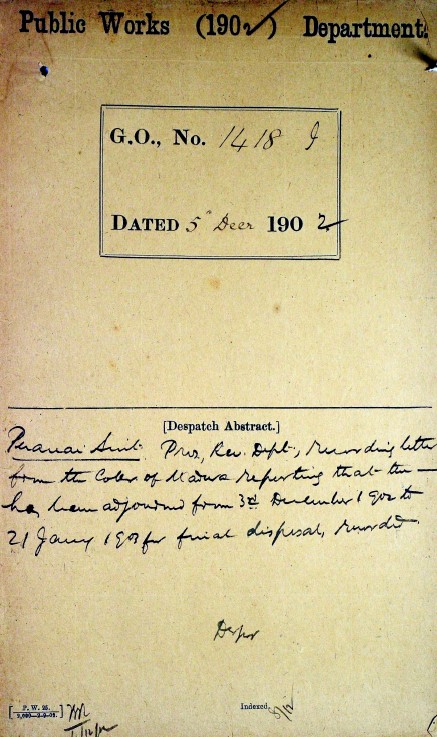 Public Works (1902) Department.
G.O., No. 1418 I
DATED 5th Decr 1902
[Despatch Abstract.]
Peranai Suit. Pros, Rev. Dpt, recording letter
from the Coller of Madura reporting that the —
has been adjourned from 3rd December 1902 to
21 Jany 1903 for final disposal, recorded
[P. W. 25.
2,000—3-9-02.]
Indexed.
8/12